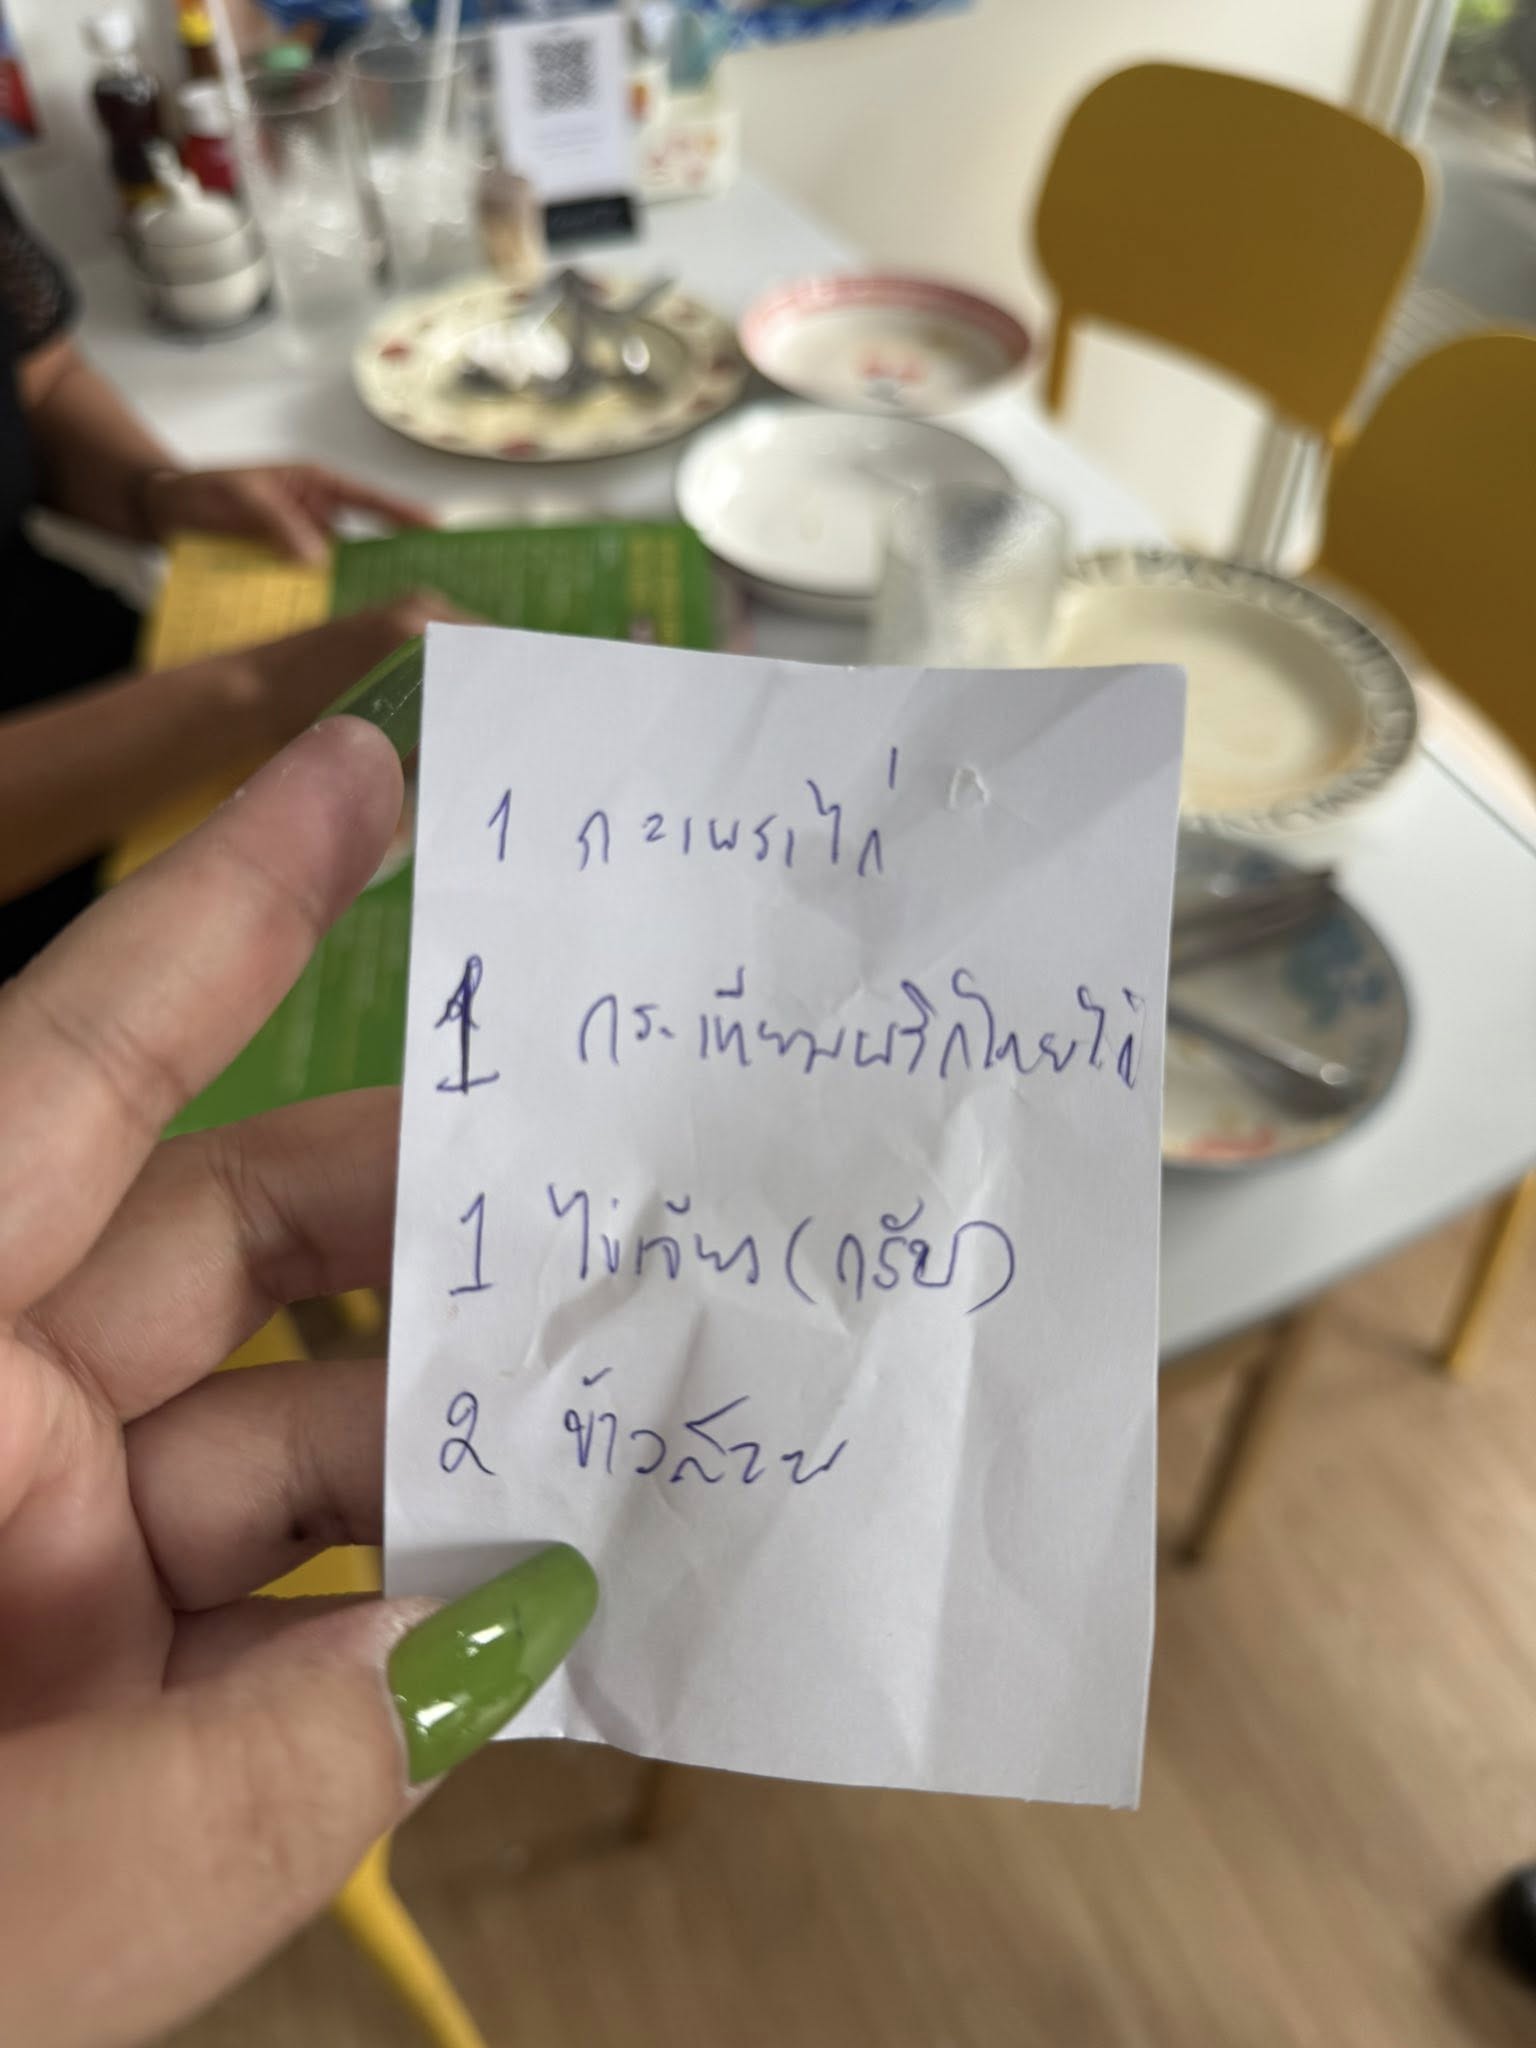 1 กะเพราไก่
1 กระเทียมพริกไทยไก่
1 ไข่เจียว (กรับ)
2 ข้าวสวย